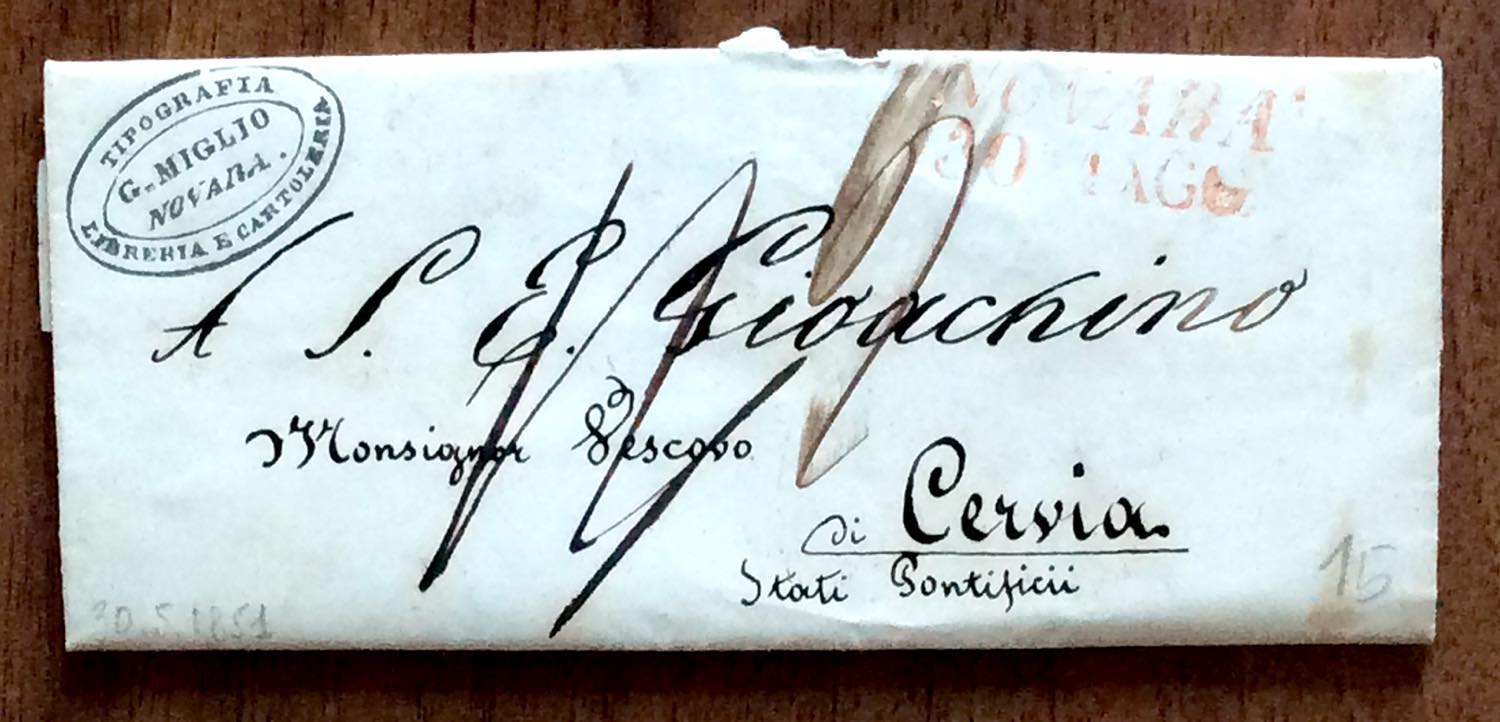 TIPOGRAFIA
G. MIGLIO
NOVARA.
LIBRERIA E CARTOLERIA
NOVARA
30 MAGG
A S. E. Gioachino
Monsignor Vescovo
di Cervia
Stati Pontificii
30.5.1851
15